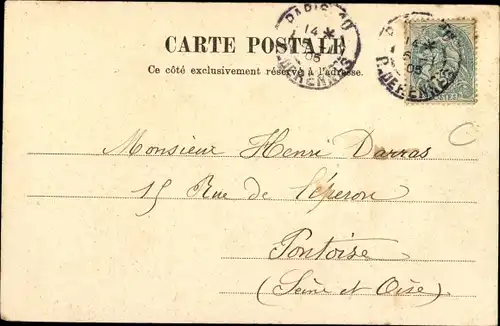 CARTE POSTALE
Ce côté exclusivement réservé à l'adresse.
Monsieur Henri Darras
15 Rue de l'éperon
Pontoise
(Seine et Oise)
PARIS
14
05
PARIS
14
05